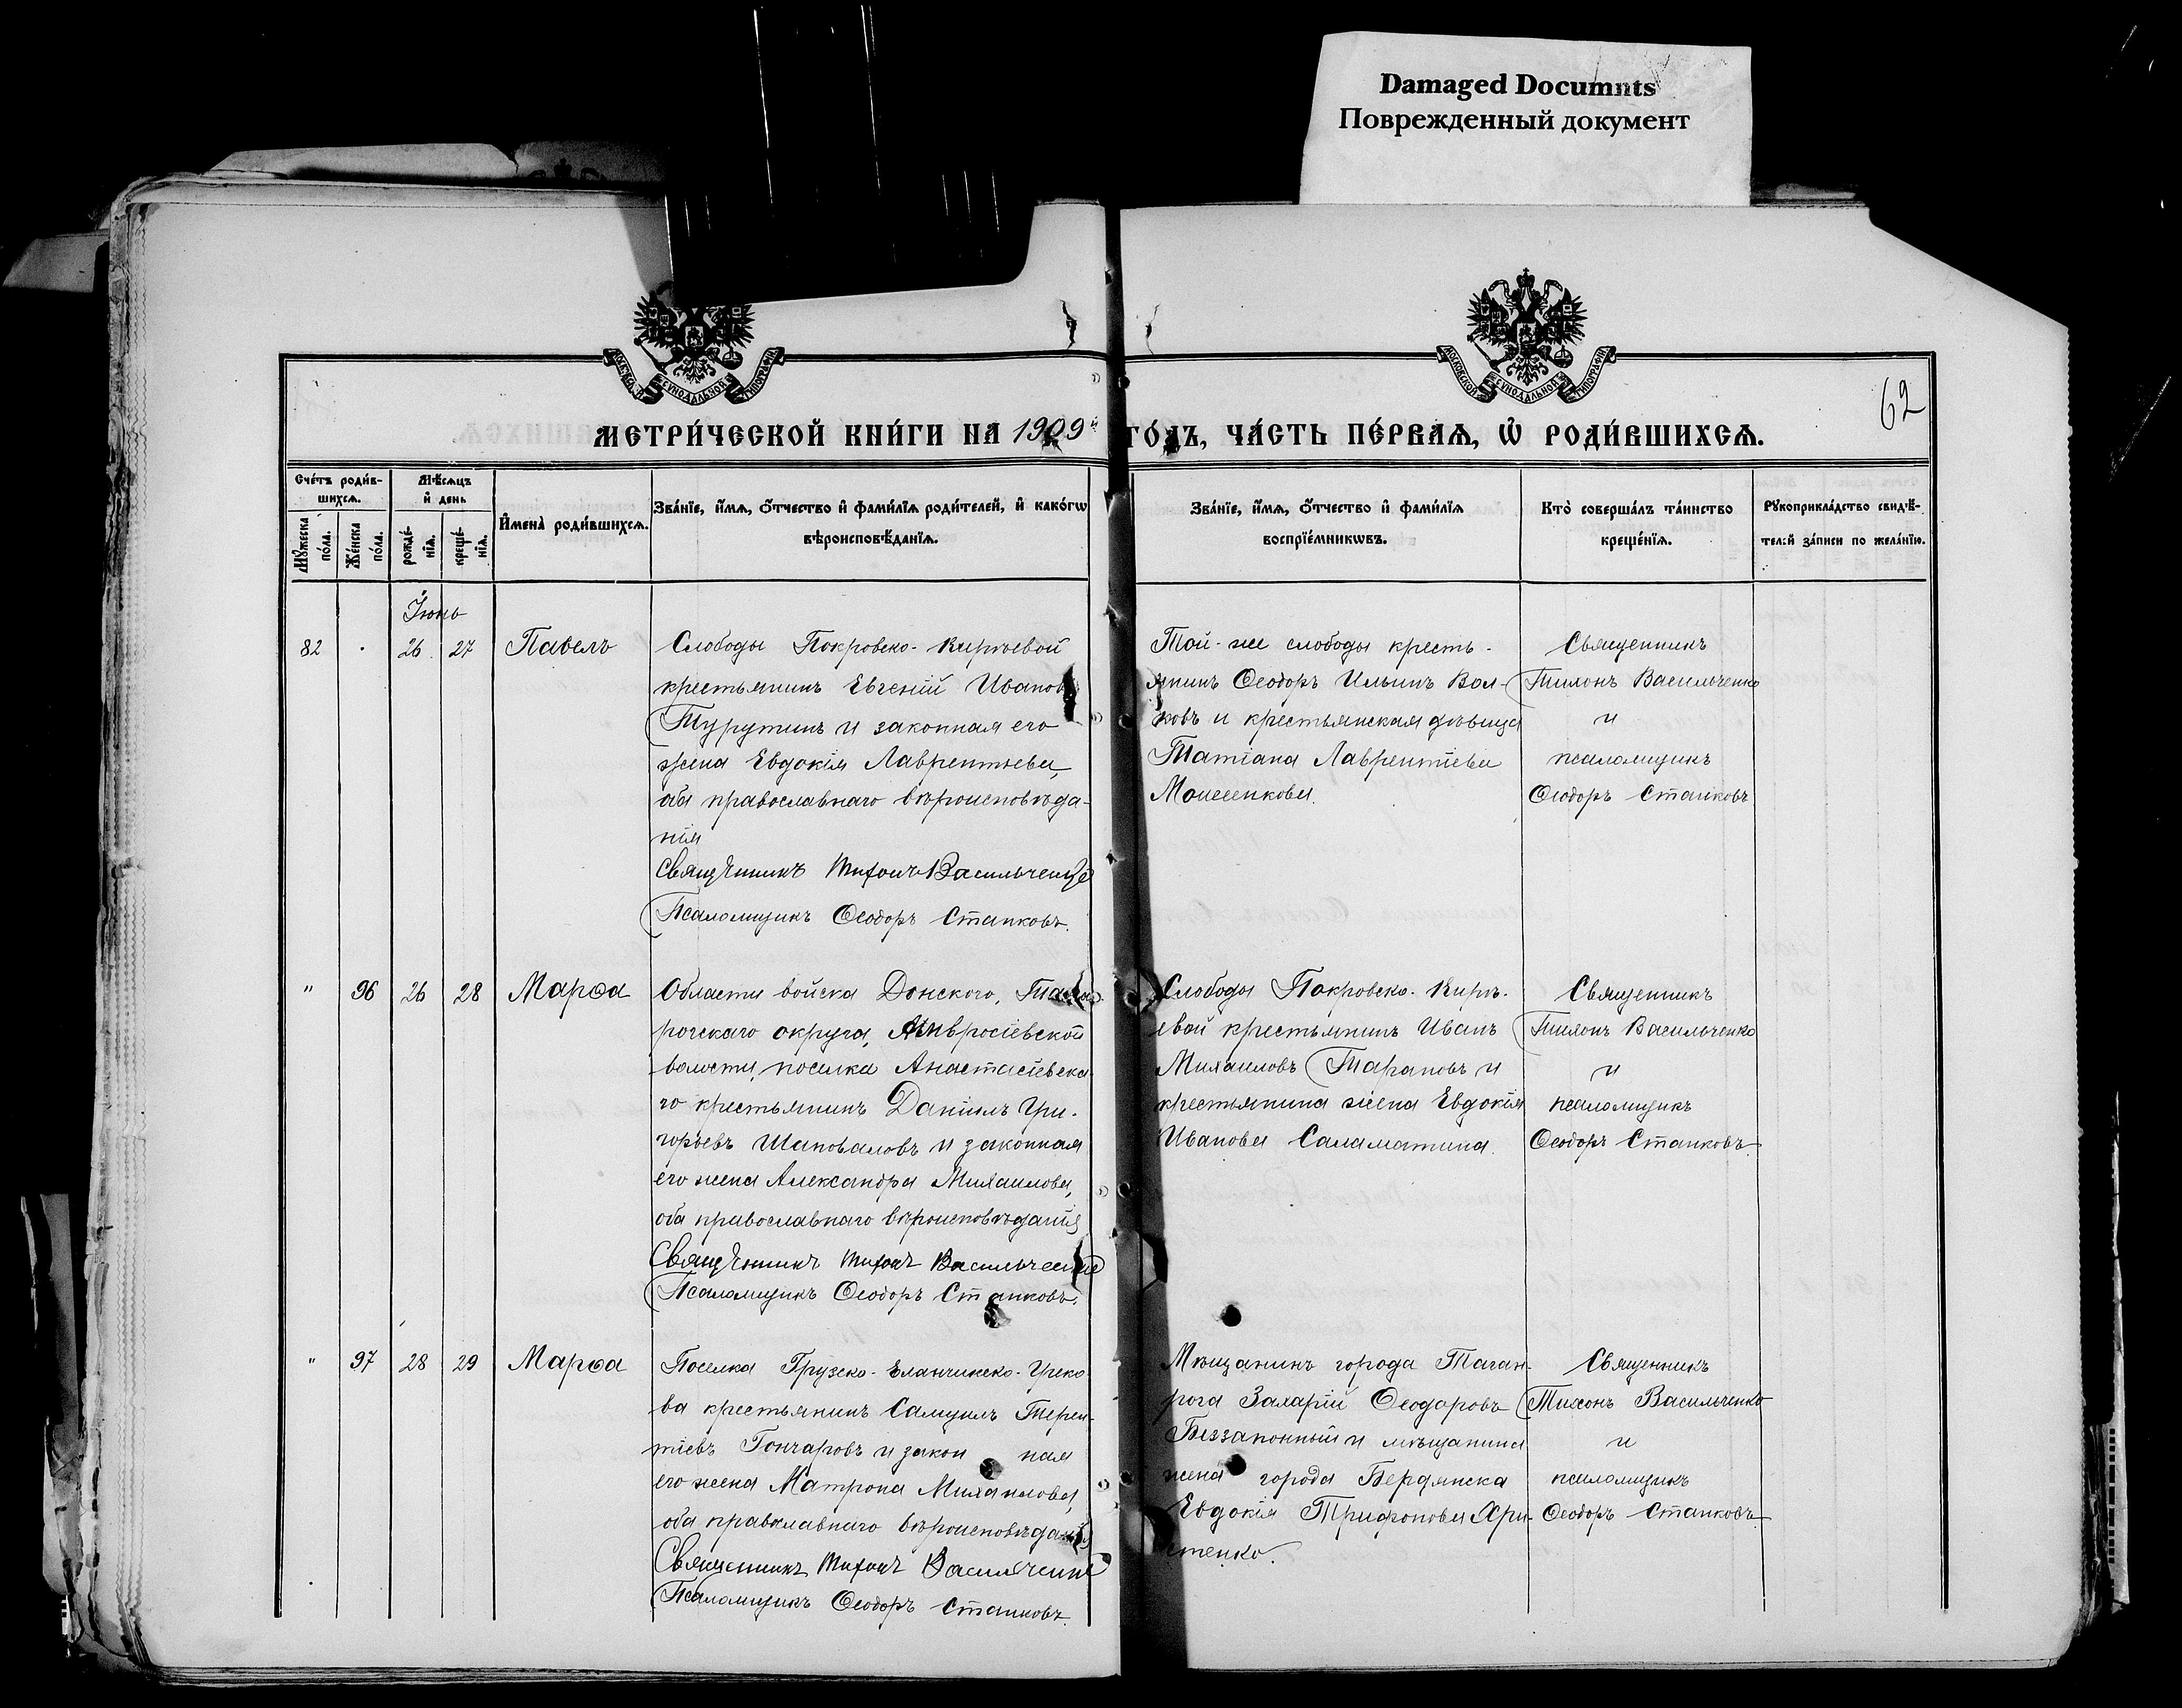 Damaged Documnts
Поврежденный документ
МОСКОВСКОЙ СѴНОДАЛЬНОЙ ТИПОГРАФІИ
МОСКОВСКОЙ СѴНОДАЛЬНОЙ ТИПОГРАФІИ
62
МЕТРИ́ЧЕСКОЙ КНИ́ГИ НА 1909й ГО́ДЪ, ЧА́СТЬ ПЕ́РВАѦ, Ѡ҆ РОДИ́ВШИХСѦ.
Сче́тъ роди́в-
шихсѧ.
Мꙋ́жеска
по́ла.
Же́нска
по́ла.
Мѣ́сѧцъ
и҆ день
рожде́-
нїѧ.
креще́-
нїѧ.
И҆мена̀ роди́вшихсѧ.
Зва́нїе, и҆́мѧ, ѻ҆́тчество и҆ фами́лїѧ роди́телей, и҆ како́гѡ
вѣроисповѣ́данїѧ.
Зва́нїе, и҆́мѧ, ѻ҆́тчество и҆ фами́лїѧ
воспрїе́мникѡвъ.
Кто̀ соверша́лъ та́инство
креще́нїѧ.
Рꙋкоприкла́дство свидѣ́-
телей за́писи по жела́нїю.
Іюнь
82 26 27 Павелъ
Слободы Покровско-Кирѣевой
крестьянинъ Евгеній Ивановъ
Турутинъ и законная его
жена Евдокія Лаврентьева,
оба православнаго вѣроисповѣда-
нія
Священникъ Тихонъ Васильченко
Псаломщикъ Ѳеодоръ Станковъ.
Той-же слободы кресть-
янинъ Ѳеодоръ Ильинъ Вол-
ковъ и крестьянская дѣвица
Татіана Лаврентіева
Моисеенкова.
Священникъ
Тихонъ Васильченко
и
псаломщикъ
Ѳеодоръ Станковъ
" 96 26 28 Марѳа
Области войска Донского, Таган-
рогскаго округа, Амвросіевской
волости, поселка Анастасіевска-
го крестьянинъ Даніилъ Гри-
горьевъ Шаповаловъ и законная
его жена Александра Михаилова,
оба православнаго вѣроисповѣданія
Священникъ Тихонъ Васильченко
Псаломщикъ Ѳеодоръ Станковъ.
Слободы Покровско-Кирѣ-
евой крестьянинъ Иванъ
Михаиловъ Тарановъ и
крестьянина жена Евдокія
Иванова Саламатина.
Священникъ
Тихонъ Васильченко
и
псаломщикъ
Ѳеодоръ Станковъ.
" 97 28 29 Марѳа
Поселка Грузско-Еланчикско-Греко
ва крестьянинъ Самуилъ Терен-
тіевъ Гончаровъ и закон ная
его жена Матрона Михаилова,
оба православнаго вѣроисповѣданія
Священникъ Тихонъ Васильченко
Псаломщикъ Ѳеодоръ Станковъ.
Мѣщанинъ города Таган-
рога Захарій Ѳеодоровъ
Беззаконный и мѣщанина
жена города Бердянска
Евдокія Трифонова Хри-
стенко.
Священникъ
Тихонъ Васильченко
и
псаломщикъ
Ѳеодоръ Станковъ.